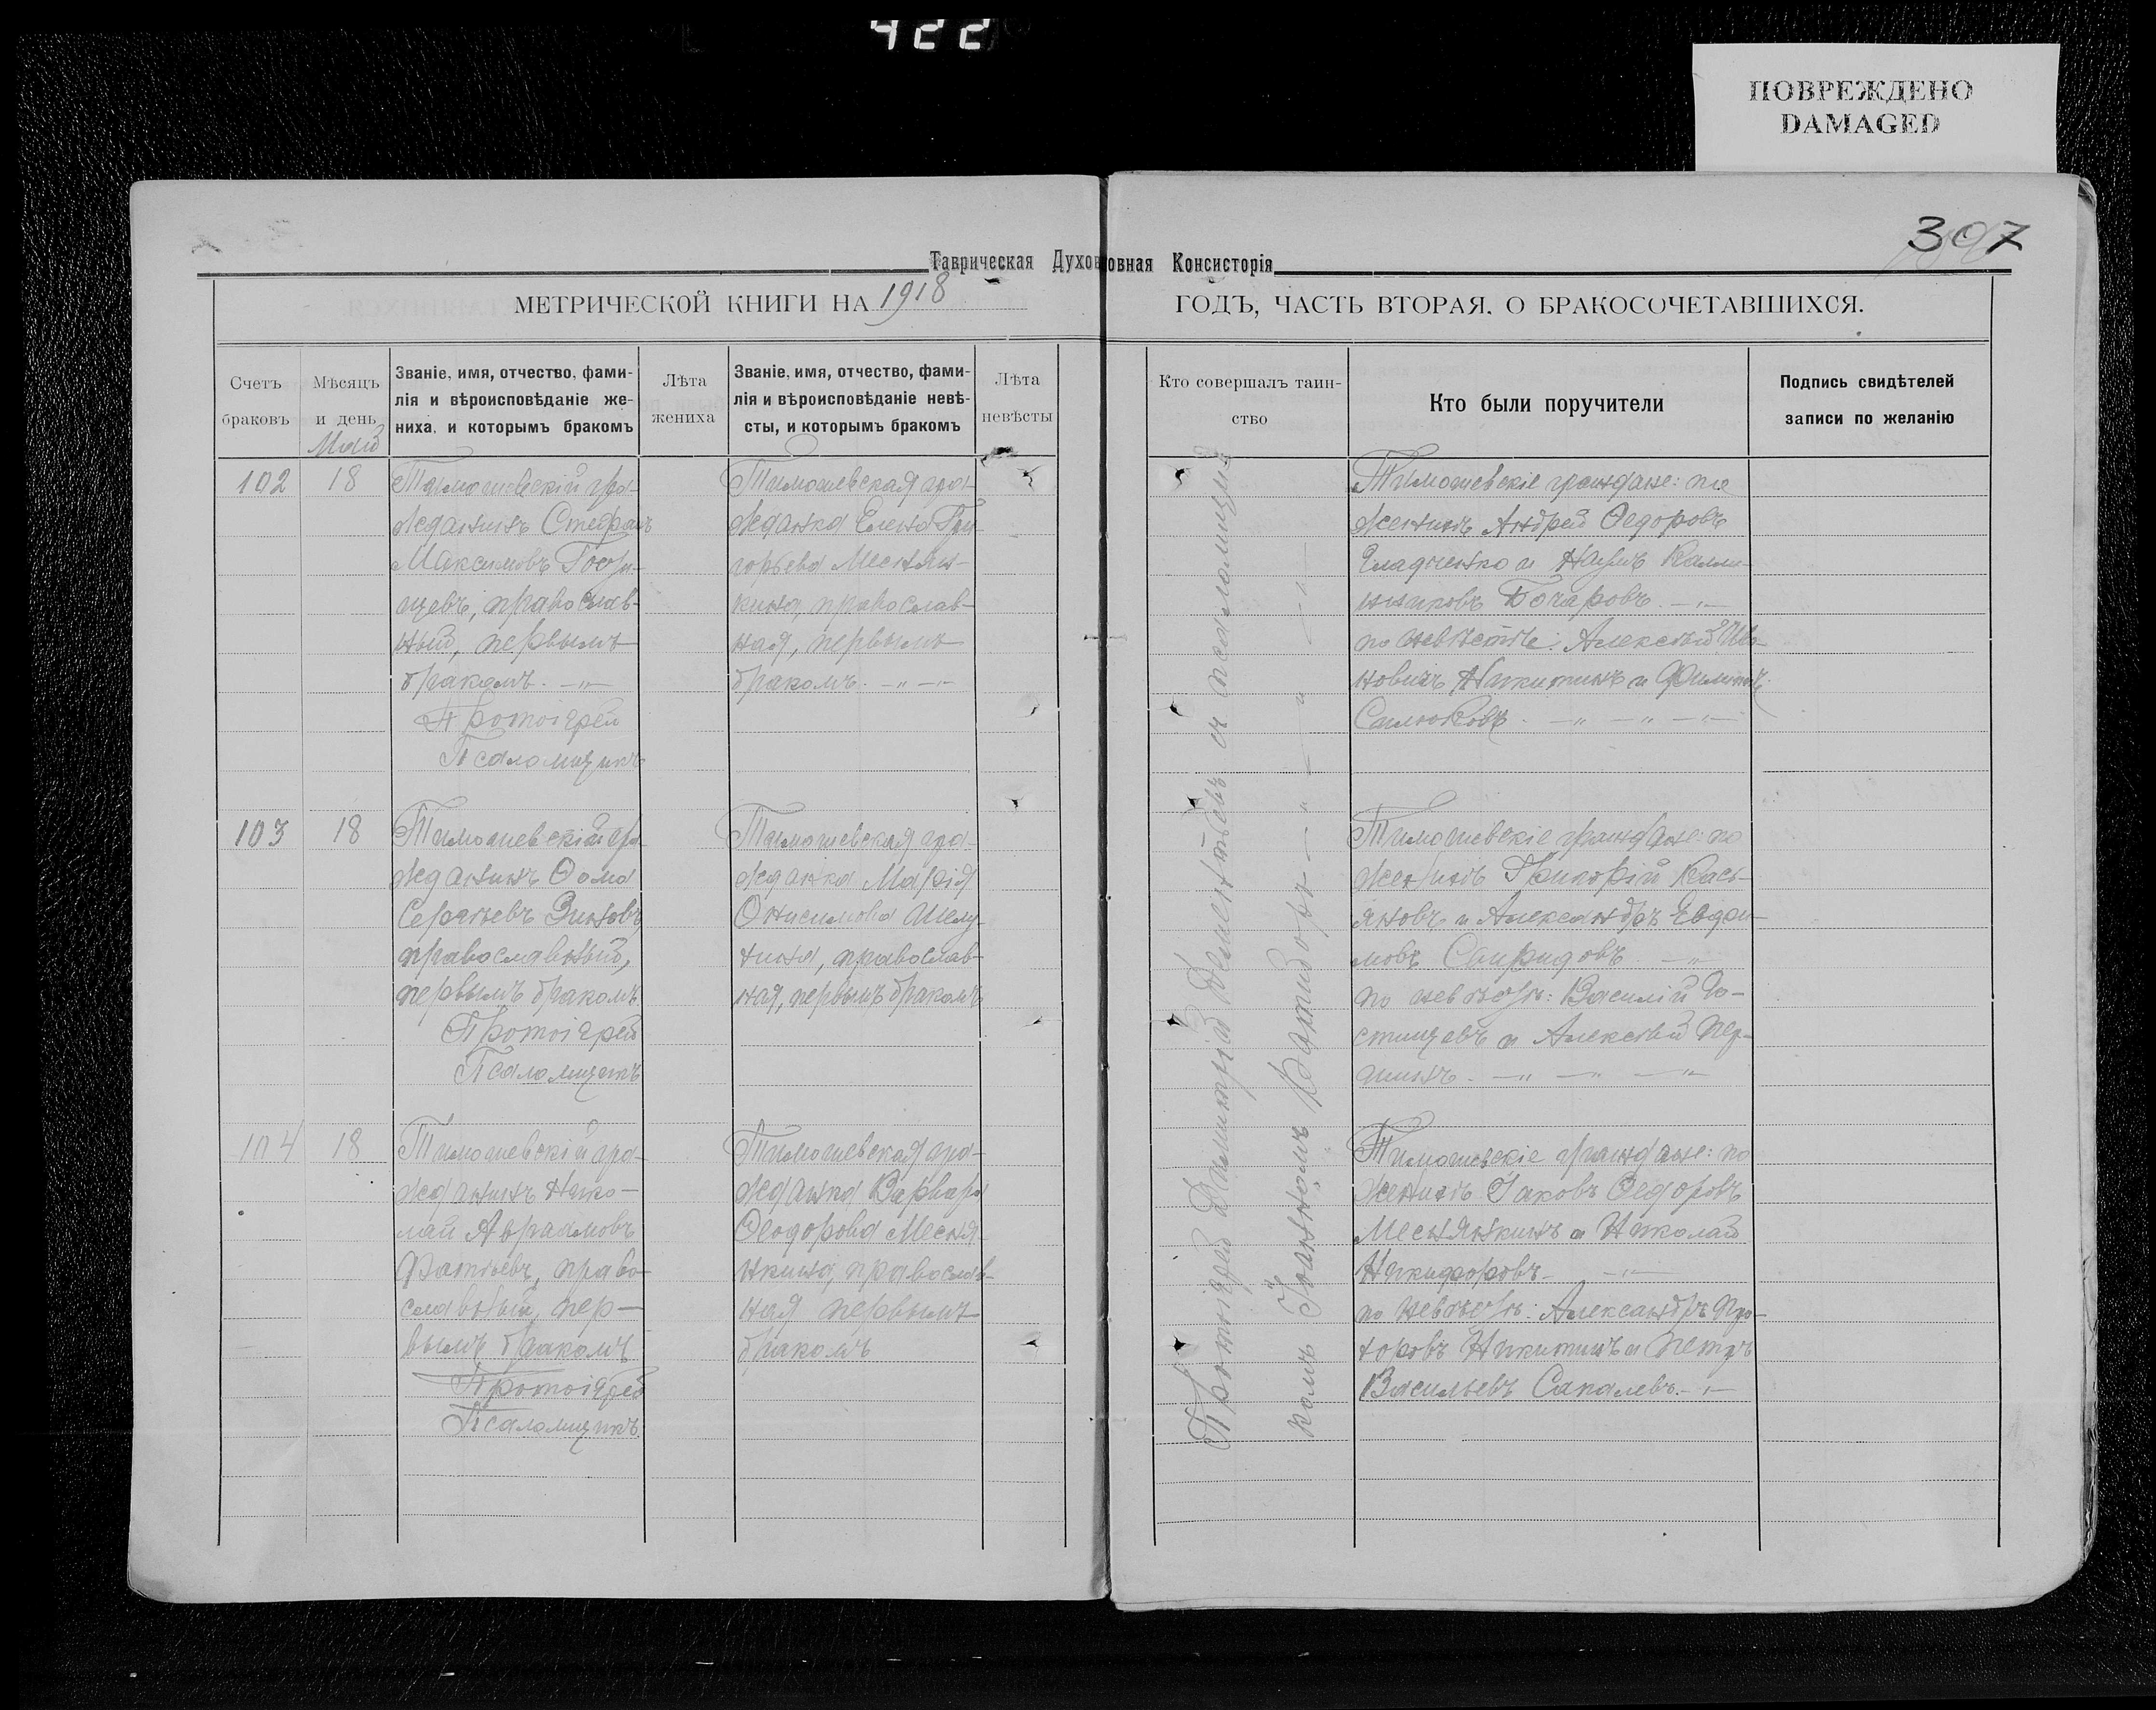 422
ПОВРЕЖДЕНО
DAMAGED
307
Таврическая Духовная Консисторія
МЕТРИЧЕСКОЙ КНИГИ НА 1918 ГОДЪ, ЧАСТЬ ВТОРАЯ, О БРАКОСОЧЕТАВШИХСЯ.
Счетъ
браковъ
Мѣсяцъ
и день
Званіе, имя, отчество, фами-
лія и вѣроисповѣданіе же-
ниха, и которымъ бракомъ
Лѣта
жениха
Званіе, имя, отчество, фами-
лія и вѣроисповѣданіе невѣ-
сты, и которымъ бракомъ
Лѣта
невѣсты
Кто совершалъ таин-
ство
Кто были поручители
Подпись свидѣтелей
записи по желанію
Май
102
18
Тимошевскій гра-
жданинъ Стефанъ
Максимовъ Гости-
щевъ, православ-
ный, первымъ
бракомъ. -"-
Протоіерей
Псаломщикъ
Тимошевская гра-
жданка Елена Гри-
горьева Меснян-
кина, православ-
ная, первымъ
бракомъ. -"-
Тимошевскіе граждане: по
женихѣ Андрей Ѳедоровъ
Гладченко и Наумъ Калли-
никовъ Бочаровъ -"-
по невѣстѣ: Алексѣй Ива-
новичъ Никитинъ и Филиппъ
Силюковъ. -"- -"- -"-
103
18
Тимошевскій гра-
жданинъ Ѳома
Сергѣевъ Зиновъ
православный,
первымъ бракомъ
Протоіерей
Псаломщикъ
Тимошевская гра-
жданка Марія
Онисимова Шелу-
тина, православ-
ная, первымъ бракомъ
Тимошевскіе граждане: по
женихѣ Григорій Касья-
новъ и Александръ Евдоки-
мовъ Спиридовъ -"-
по невѣстѣ: Василій Го-
стищевъ и Алексѣй Пер-
шинъ. -"- -"- -"-
104
18
Тимошевскій гра-
жданинъ Нико-
лай Аврамовъ
Фатѣевъ, право-
славный, пер-
вымъ бракомъ
Протоіерей
Псаломщикъ
Тимошевская гра-
жданка Варвара
Ѳеодорова Месня-
нкина, православ-
ная первымъ
бракомъ
Тимошевскіе граждане: по
женихѣ Іаковъ Ѳедоровъ
Меснянкинъ и Николай
Никифоровъ -"-
по невѣстѣ: Александръ Про-
хоровъ Никитинъ и Петръ
Васильевъ Сапалевъ. -"-
Протоіерей Димитрій Дементьевъ съ псаломщи-
комъ Іоанномъ